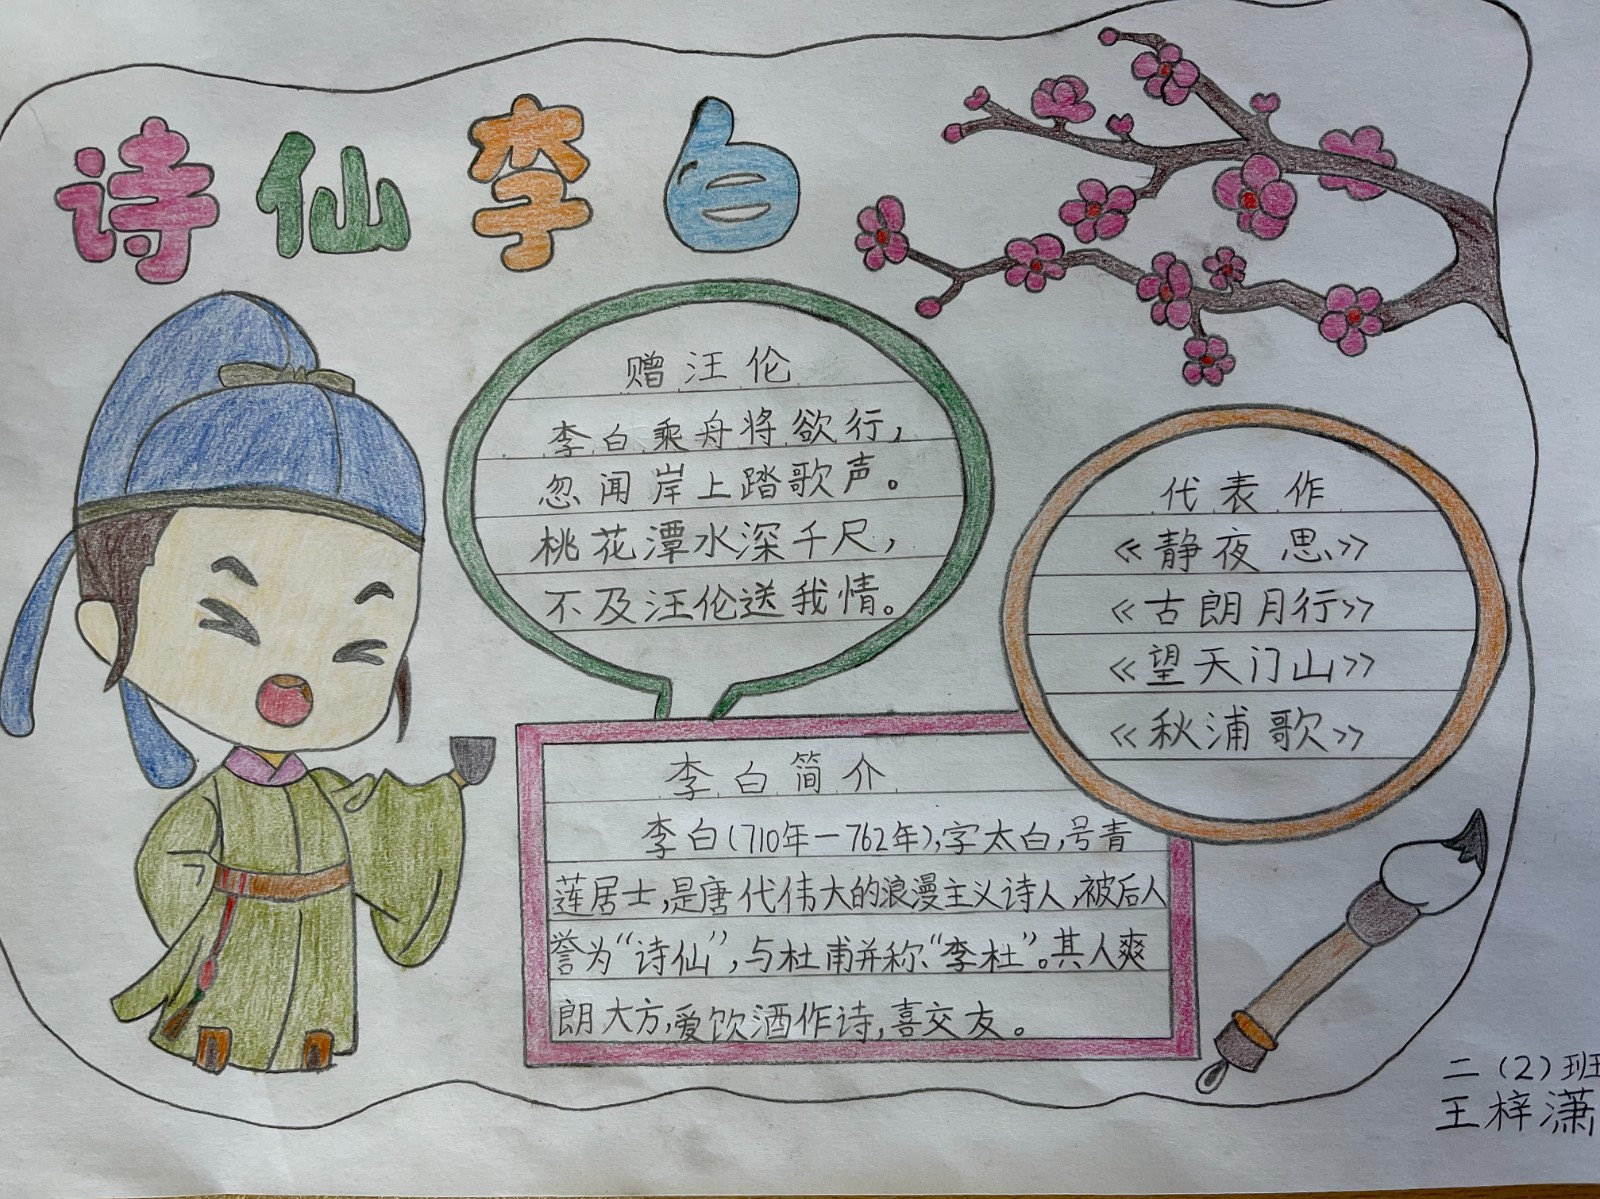 诗仙李白
赠汪伦
李白乘舟将欲行,
忽闻岸上踏歌声。
桃花潭水深千尺,
不及汪伦送我情。
代表作
《静夜思》
《古朗月行》
《望天门山》
《秋浦歌》
李白简介
李白(710年—762年),字太白,号青
莲居士,是唐代伟大的浪漫主义诗人,被后人
誉为“诗仙”,与杜甫并称“李杜”。其人爽
朗大方,爱饮酒作诗,喜交友。
二(2)班
王梓潇